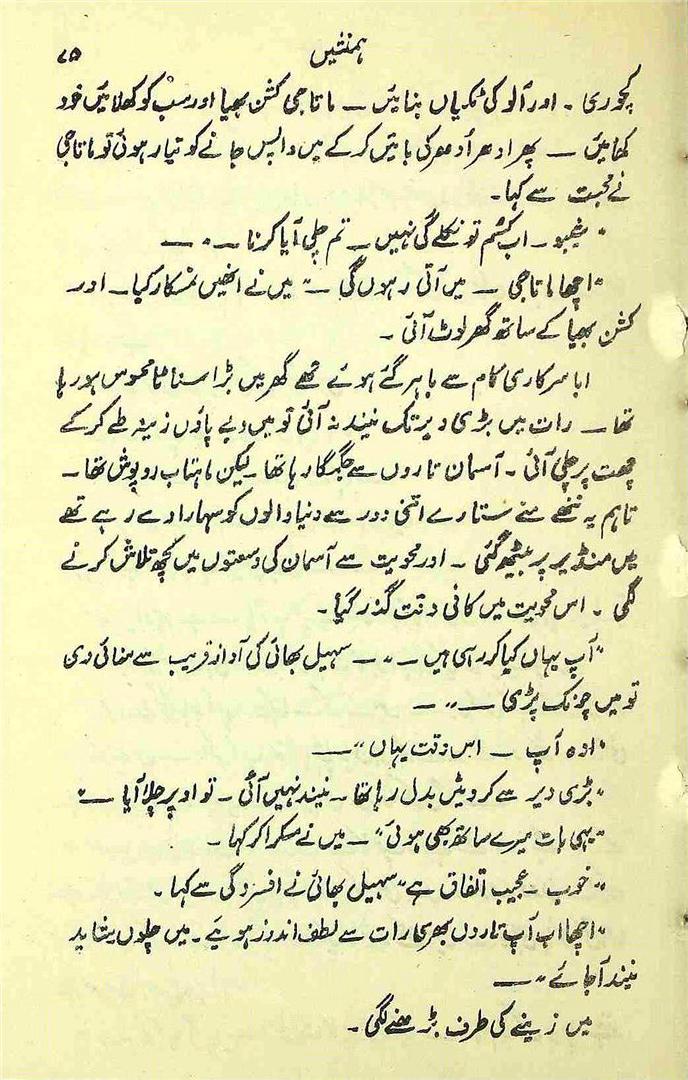 ہمنشیں ۷۵
کچوری۔ اور آلو کی ٹکیاں بنائیں — ماتا جی کشن بھیا اور سب کو کھلائیں خود
کھائیں — پھر ادھر اُدھر کی باتیں کر کے میں واپس جانے کو تیار ہوئی تو ماتا جی
نے محبت سے کہا۔
" شبو۔ اب کسم تو نکلے گی نہیں۔ تم چلی آیا کرنا —" —
"اچھا ماتا جی — میں آتی رہوں گی —" میں نے انھیں نمسکار کیا۔ اور
کشن بھیا کے ساتھ گھر لوٹ آئی۔
ابا سرکاری کام سے باہر گئے ہوئے تھے گھر میں بڑا سناٹا محسوس ہو رہا
تھا — رات میں بڑی دیر تک نیند نہ آئی تو میں دبے پاؤں زینہ طے کر کے
چھت پر چلی آئی۔ آسمان تاروں سے جگمگا رہا تھا۔ لیکن ماہتاب روپوش تھا۔
تاہم یہ ننھے منے ستارے اتنی دور سے دنیا والوں کو سہارا دے رہے تھے
میں منڈیر پر بیٹھ گئی۔ اور محویت سے آسمان کی وسعتوں میں کچھ تلاش کرنے
لگی۔ اس محویت میں کافی وقت گذر گیا۔
"آپ یہاں کیا کر رہی ہیں —" — سہیل بھائی کی آواز قریب سے سنائی دی
تو میں چونک پڑی —" —
"اوہ آپ — اس وقت یہاں" —
"بڑی دیر سے کروٹیں بدل رہا تھا۔ نیند نہیں آئی۔ تو اوپر چلا آیا —"
"یہی بات میرے ساتھ بھی ہوئی" — میں نے مسکرا کر کہا۔
"خوب۔ عجیب اتفاق ہے" سہیل بھائی نے افسردگی سے کہا۔
"اچھا اب آپ تاروں بھری رات سے لطف اندوز ہوئیے۔ میں چلوں شاید
نیند آ جائے" —
میں زینے کی طرف بڑھنے لگی۔